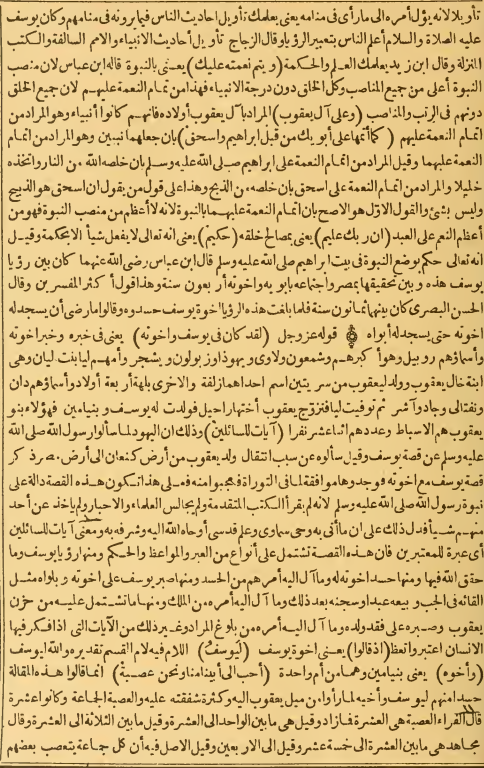 تأويلا لانه يؤل أمره الى مارأى فى منامه يعنى يعلمك تأويل أحاديث الناس فيما يرونه فى منامهم وكان يوسف
عليه الصلاة والسلام أعلم الناس بتعبير الرؤيا وقال الزجاج تأويل أحاديث الانبياء والامم السالفة والكتب
المنزلة وقال ابن زيد يعلمك العلم والحكمة (ويتم نعمته عليك) يعنى بالنبوة قاله ابن عباس لان منصب
النبوة أعلى من جميع المناصب وكل الخلق دون درجة الانبياء فهذا من تمام النعمة عليهم لان جميع الخلق
دونهم فى الرتب والمناصب (وعلى آل يعقوب) المراد بآل يعقوب أولاده فانهم كانوا أنبياء وهو المراد من
اتمام النعمة عليهم (كما أتمها على أبويك من قبل ابراهيم واسحق) بان جعلهما نبيين وهو المراد من اتمام
النعمة عليهما وقيل المراد من اتمام النعمة على ابراهيم صلى الله عليه وسلم بان خلصه الله من النار واتخذه
خليلا والمراد من اتمام النعمة على اسحق بان خلصه من الذبح وهذا على قول من يقول ان اسحق هو الذبيح
وليس بشئ والقول الاول هو الاصح بان اتمام النعمة عليهما بالنبوة لانه لا أعظم من منصب النبوة فهو من
أعظم النعم على العبد (ان ربك عليم) يعنى بمصالح خلقه (حكيم) يعنى انه تعالى لا يفعل شيأ الا بحكمة وقيل
انه تعالى حكم بوضع النبوة فى بيت ابراهيم صلى الله عليه وسلم قال ابن عباس رضى الله عنهما كان بين رؤيا
يوسف هذه وبين تحقيقها بمصر واجتماعه بأبويه واخوته أربعون سنة وهذا قول أكثر المفسرين وقال
الحسن البصرى كان بينهما ثمانون سنة فلما بلغت هذه الرؤيا اخوة يوسف حسدوه وقالوا مارضى أن يسجد له
اخوته حتى يسجد له أبواه قوله عز وجل (لقد كان فى يوسف واخوته) يعنى فى خبره وخبر اخوته
وأسماؤهم روبيل وهو أكبرهم وشمعون ولاوى ويهوذا وزبولون ويشجر وأمهم ليا بنت ليان وهى
ابنة خال يعقوب وولد ليعقوب من سريتين اسم احداهما زلفة والاخرى بلهة أربعة أولاد وأسماؤهم دان
ونفتالى وجاد وآشر ثم توفيت ليا فتزوج يعقوب أختها راحيل فولدت له يوسف وبنيامين فهؤلاء بنو
يعقوب هم الاسباط وعددهم اثنا عشر نفرا (آيات للسائلين) وذلك ان اليهود لما سألوا رسول الله صلى الله
عليه وسلم عن قصة يوسف وقيل سألوه عن سبب انتقال ولد يعقوب من أرض كنعان الى أرض مصر ذكر
قصة يوسف مع اخوته فوجدوها موافقة لما فى التوراة فعجبوا منه فعلى هذا تكون هذه القصة دالة على
نبوة رسول الله صلى الله عليه وسلم لانه لم يقرأ الكتب المتقدمة ولم يجالس العلماء والاحبار ولم يأخذ عن أحد
منهم شيأ فدل ذلك على ان ما أتى به وحى سماوى وعلم قدسى أوحاه الله اليه وشرفه به ومعنى آيات للسائلين
أى عبرة للمعتبرين فان هذه القصة تشتمل على أنواع من العبر والمواعظ والحكم ومنها رؤيا يوسف وما
حقق الله فيها ومنها حسد اخوته له وما آل اليه أمرهم من الحسد ومنها صبر يوسف على اخوته وبلواه مثل
القائه فى الجب وبيعه عبدا وسجنه بعد ذلك وما آل اليه أمره من الملك ومنها ما تشتمل عليه من حزن
يعقوب وصبره على فقد ولده وما آل اليه أمره من بلوغ المراد وغير ذلك من الآيات التى اذا فكر فيها
الانسان اعتبر واتعظ (اذ قالوا) يعنى اخوة يوسف (ليوسف) اللام فيه لام القسم تقديره والله ليوسف
(وأخوه) يعنى بنيامين وهما من أم واحدة (أحب الى أبينا منا ونحن عصبة) انما قالوا هذه المقالة
حسدا منهم ليوسف وأخيه لما رأوا من ميل يعقوب اليه وكثرة شفقته عليه والعصبة الجماعة وكانوا عشرة
قال الفراء العصبة هى العشرة فما زاد وقيل هى ما بين الواحد الى العشرة وقيل ما بين الثلاثة الى العشرة وقال
مجاهد هى ما بين العشرة الى خمسة عشر وقيل الى الاربعين وقيل الاصل فيه أن كل جماعة يتعصب بعضهم